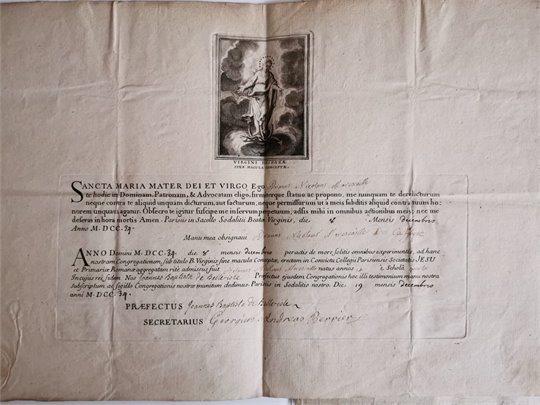 VIRGINI DEIPARÆ
SINE MACULA CONCEPTÆ.
SANCTA MARIA MATER DEI ET VIRGO Ego Nicolaus
te hodie in Dominam, Patronam, & Advocatam eligo, firmiterque statuo ac propono, me nunquam te derelicturum
neque contra te aliquid unquam dicturum, aut facturum, neque permissurum ut a meis subditis aliquid contra tuum ho-
norem unquam agatur. Obsecro te igitur suscipe me in servum perpetuum, adsis mihi in omnibus actionibus meis, nec me
deseras in hora mortis Amen. Parisiis in Sacello Sodalitii Beatæ Virginis, die 8 Mensis decembris
Anno M. DCC. 34.
Manu mea obsignavi Nicolaus
ANNO Domini M. DCC. 34. die 8 mensis decembris peractis de more solitis omnibus experimentis, ad hanc
nostram Congregationem, sub titulo B. Virginis sine macula Conceptæ, erectam in Convictu Collegii Parisiensis Societatis JESU
et Primariæ Romanæ aggregatam rite admissus fuit natus annis è Scholâ
In cujus rei fidem Nos Joannes Baptista de Præfectus ejusdem Congregationis hoc illi testimonium manu nostra
subscriptum ac sigillo Congregationis nostræ munitum dedimus. Parisiis in Sodalitio nostro. Die 19 mensis decembris
anni M. DCC. 34.
PRÆFECTUS Joannes Baptista de
SECRETARIUS Georgius Andreas